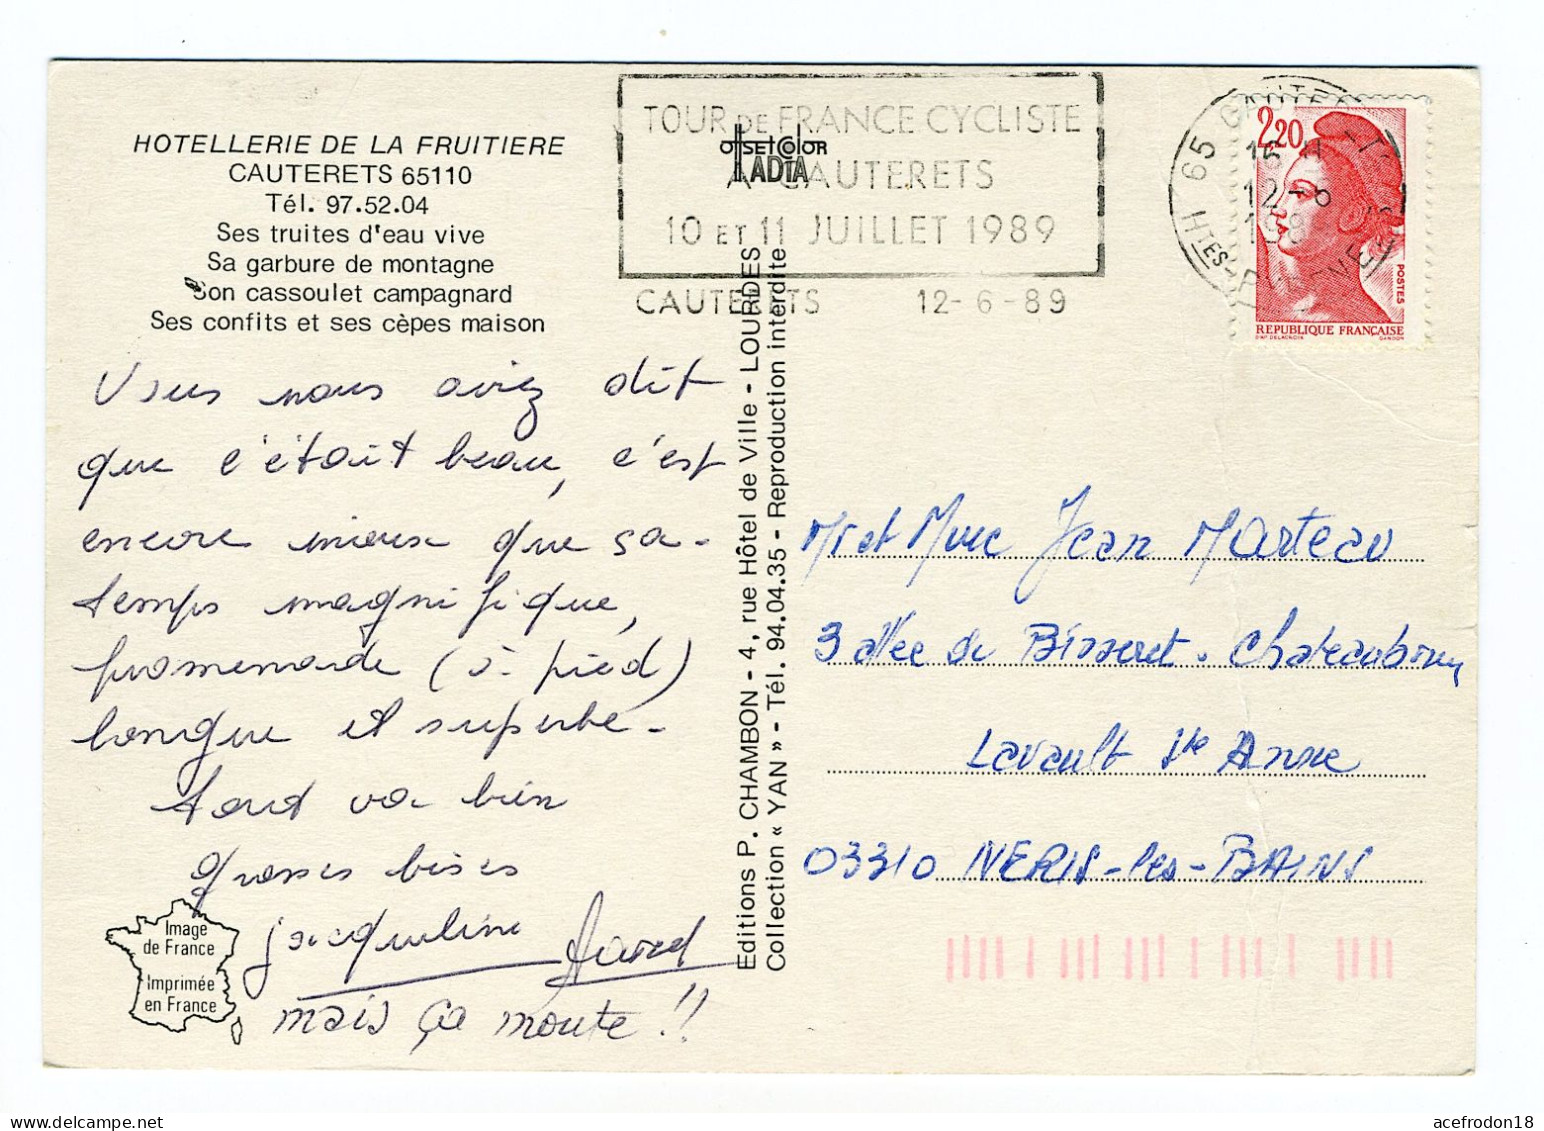 HOTELLERIE DE LA FRUITIERE
CAUTERETS 65110
Tél. 97.52.04
Ses truites d'eau vive
Sa garbure de montagne
Son cassoulet campagnard
Ses confits et ses cèpes maison
TOUR DE FRANCE CYCLISTE
A CAUTERETS
10 ET 11 JUILLET 1989
CAUTERETS 12-6-89
offset color
IADIA
65 CAUTERETS
16 H
12-6
198
HTES-PYRENEES
2,20
POSTES
REPUBLIQUE FRANÇAISE
D'AP. DELACROIX GANDON
Vous nous aviez dit
que c'était beau, c'est
encore mieux que ça.
temps magnifique,
promenade (à pied)
longue et superbe.
tout va bien
grosses bises
jacqueline Marcel
mais ça monte !!
Image
de France
Imprimée
en France
Editions P. CHAMBON - 4, rue Hôtel de Ville - LOURDES
Collection « YAN » - Tél. 94.04.35 - Reproduction interdite
Mr et Mme Jean Marteau
3 allée de Bisseret. Chateaubrun
Lavault Ste Anne
03310 NERIS-les-BAINS
acefrodon18